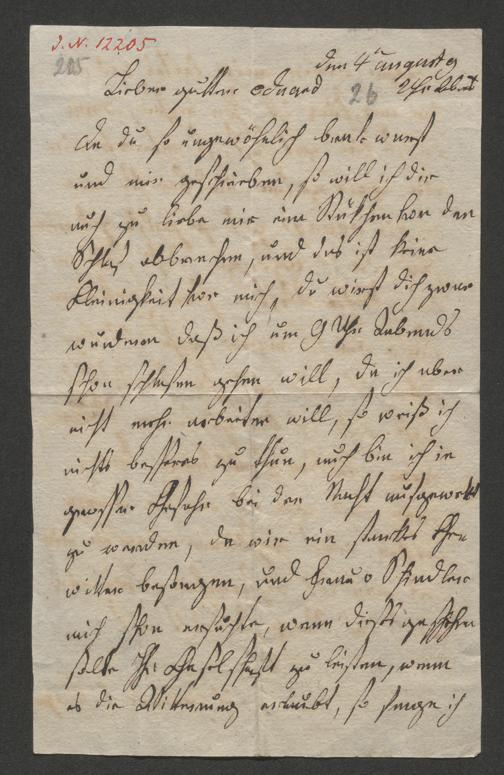 J. N. 12205
205
den 4t august 9
Lieber gutter Eduard 26 Uhr Abends
Da du so ungewöhnlich brav warst
und mir geschrieben, so will ich dir
auch zu liebe mir ein Stükchen von den
Schlaf abbrechen, und das ist keine
Kleinigkeit vor mich, du wirst dich zwar
wundern daß ich um 9 Uhr Aabends
schon schlafen gehen will, da ich aber
nicht mehr arbeiten will, so weiß ich
nichts besseres zu thun, auch bin ich in
grosser Gefahr bei der Nacht aufgewekt
zu werden, da wir ein starkes Ge
witter besorgen, und Frau v Schindler
mich schon ersuchte, wenn dieß geschehen
solte Ihr Geselschaft zu leisten, wenn
es die Witterung erlaubt, so fange ich